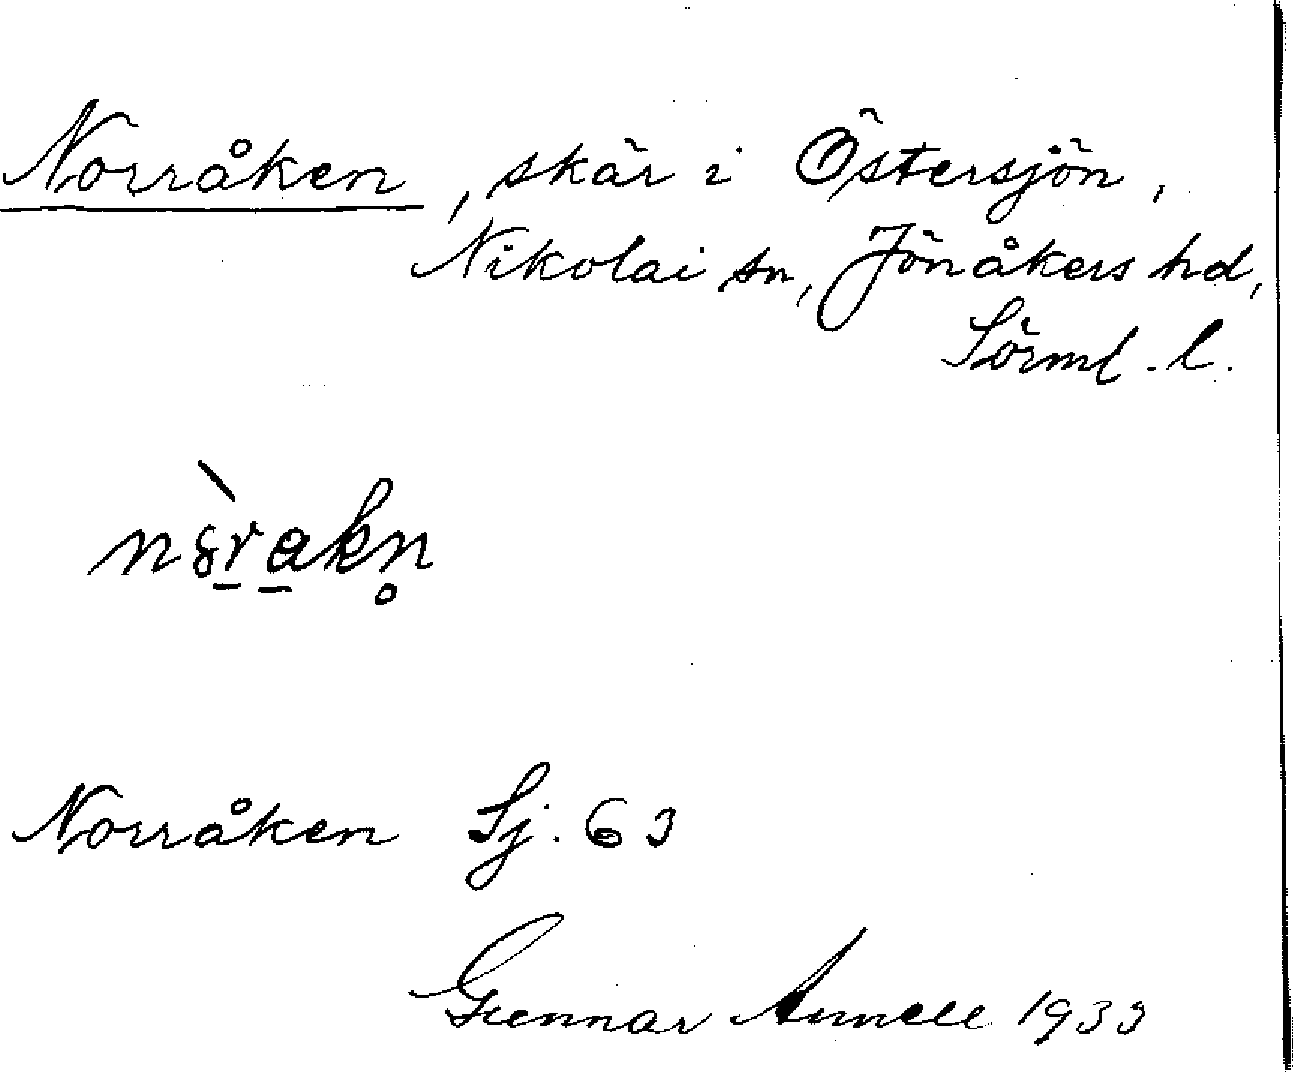 Norråken, skär i Östersjön,
Nikolai sn, Jönåkers hd,
Sörml. l.
Norråken Sj. 63
Gunnar Aunell 1933